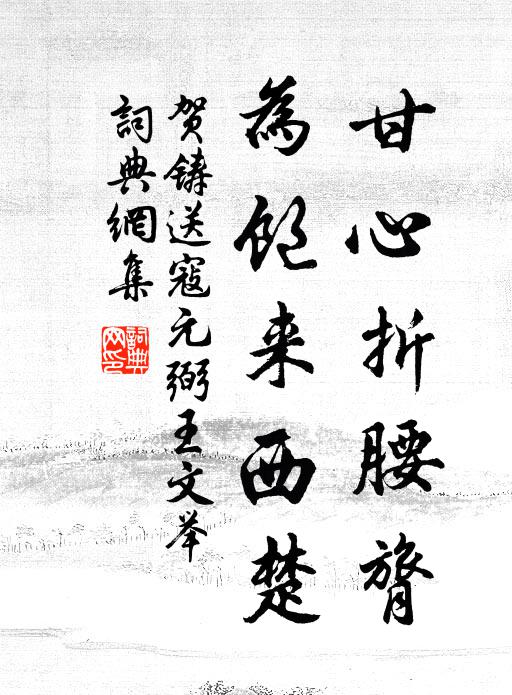 甘心折腰膂
為飢来西楚
贺鑄送寇元弼王文举
詞典網集
詞典網印